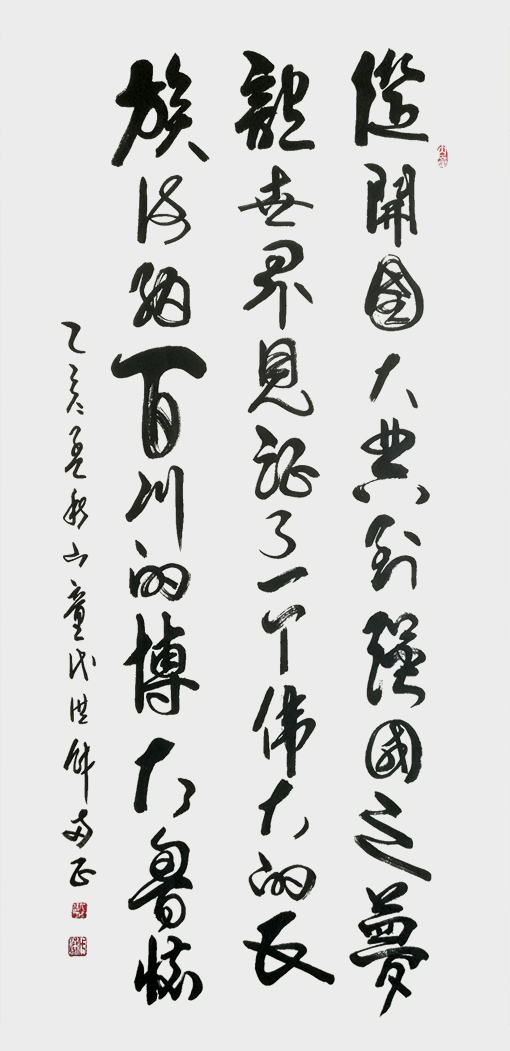 從開國大典到強國之夢
讓世界見証了一个偉大的民
族海納百川的博大胸懷
己亥孟秋山童代洪